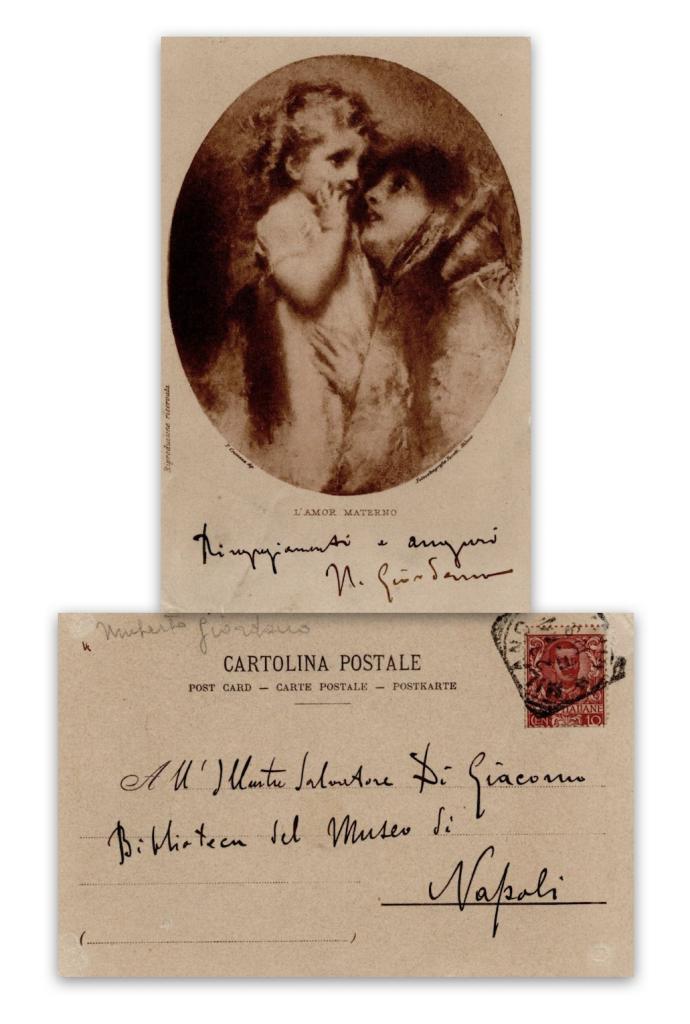 Riproduzione riservata
L'AMOR MATERNO
Ringraziamenti e auguri
U. Giordano
Umberto Giordano
CARTOLINA POSTALE
POST CARD — CARTE POSTALE — POSTKARTE
10
All' Illustre Salvatore Di Giacomo
Biblioteca del Museo di
Napoli
( )